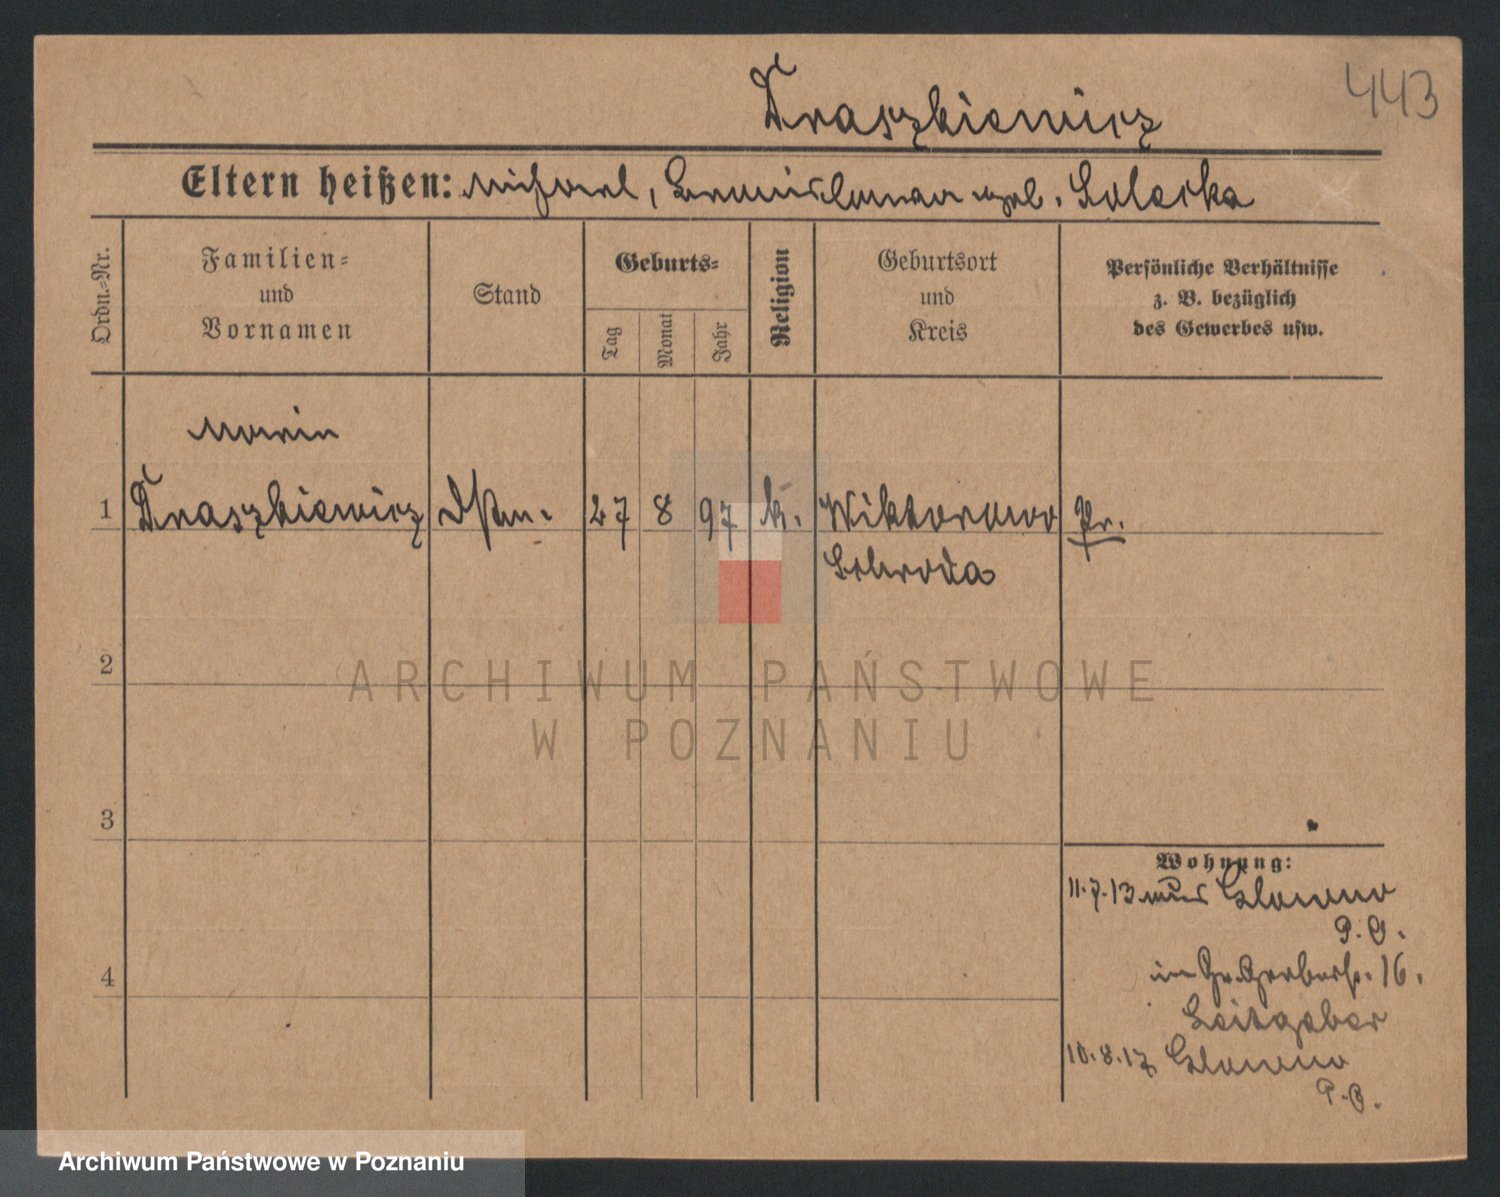 443
Draszkiewicz
Eltern heißen: Michael, Bronislawa geb. Solecka
Ordn.-Nr.
Familien-
und
Vornamen
Stand
Geburts-
Tag
Monat
Jahr
Religion
Geburtsort
und
Kreis
Persönliche Verhältnisse
z. B. bezüglich
des Gewerbes usw.
Maria
1 Draszkiewicz Dstm. 27 8 97 k. Wiktorowo Pr.
Schroda
2
ARCHIWUM PAŃSTWOWE
W POZNANIU
3
Wohnung:
11.7.13 aus Glowno
P. O.
in Gr. Gerberstr. 16.
Leitgeber
10.8.17 Glowno
P. O.
4
Archiwum Państwowe w Poznaniu